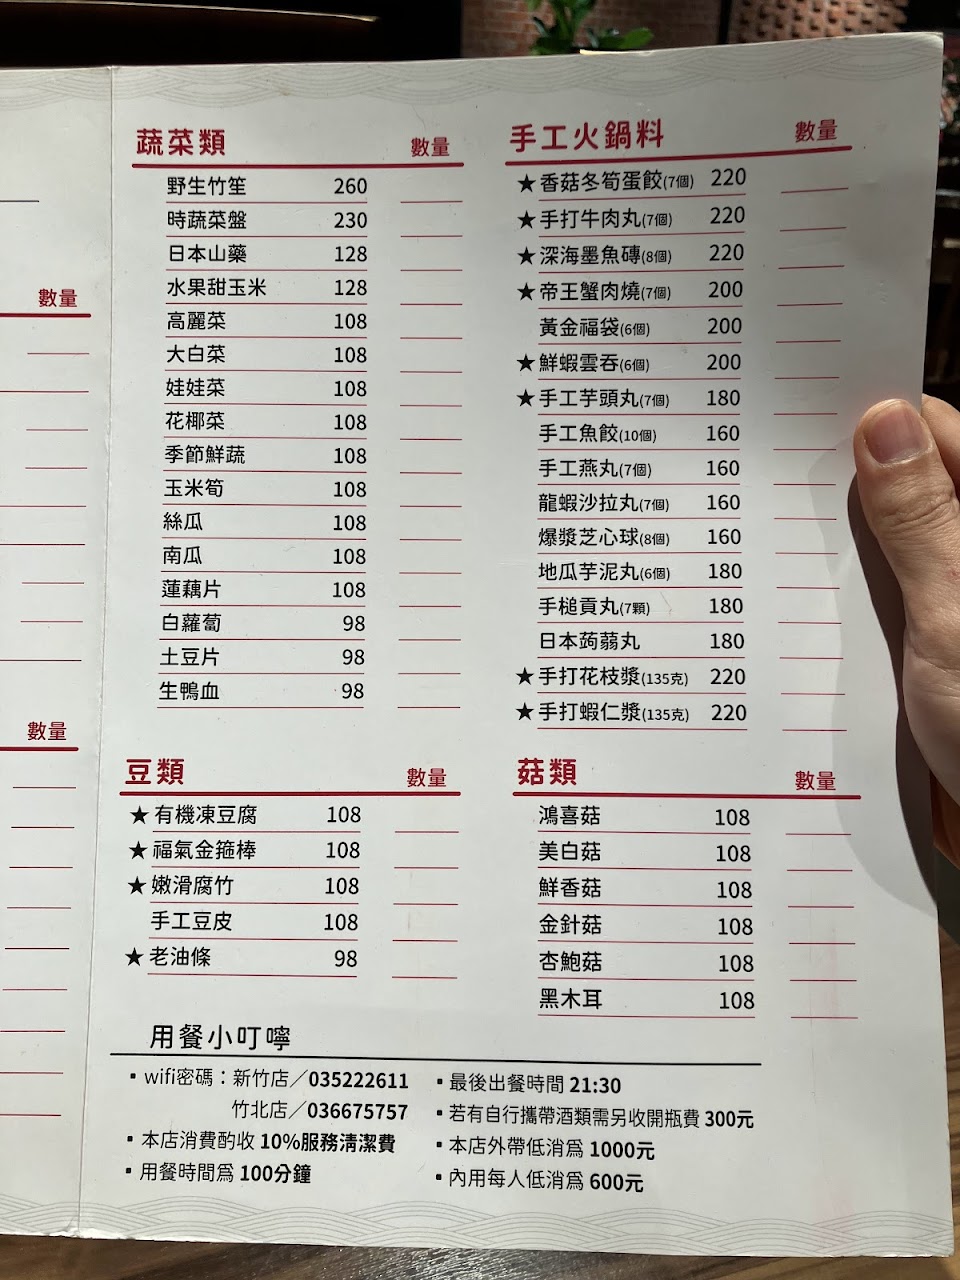 數量
數量
蔬菜類 數量
野生竹笙 260
時蔬菜盤 230
日本山藥 128
水果甜玉米 128
高麗菜 108
大白菜 108
娃娃菜 108
花椰菜 108
季節鮮蔬 108
玉米筍 108
絲瓜 108
南瓜 108
蓮藕片 108
白蘿蔔 98
土豆片 98
生鴨血 98
豆類 數量
★有機凍豆腐 108
★福氣金箍棒 108
★嫩滑腐竹 108
手工豆皮 108
★老油條 98
手工火鍋料 數量
★香菇冬筍蛋餃(7個) 220
★手打牛肉丸(7個) 220
★深海墨魚磚(8個) 220
★帝王蟹肉燒(7個) 200
黃金福袋(6個) 200
★鮮蝦雲吞(6個) 200
★手工芋頭丸(7個) 180
手工魚餃(10個) 160
手工燕丸(7個) 160
龍蝦沙拉丸(7個) 160
爆漿芝心球(8個) 160
地瓜芋泥丸(6個) 180
手槌貢丸(7顆) 180
日本蒟蒻丸 180
★手打花枝漿(135克) 220
★手打蝦仁漿(135克) 220
菇類 數量
鴻喜菇 108
美白菇 108
鮮香菇 108
金針菇 108
杏鮑菇 108
黑木耳 108
用餐小叮嚀
▪wifi密碼：新竹店／035222611
竹北店／036675757
▪本店消費酌收 10%服務清潔費
▪用餐時間為 100分鐘
▪最後出餐時間 21:30
▪若有自行攜帶酒類需另收開瓶費 300元
▪本店外帶低消為 1000元
▪內用每人低消為 600元